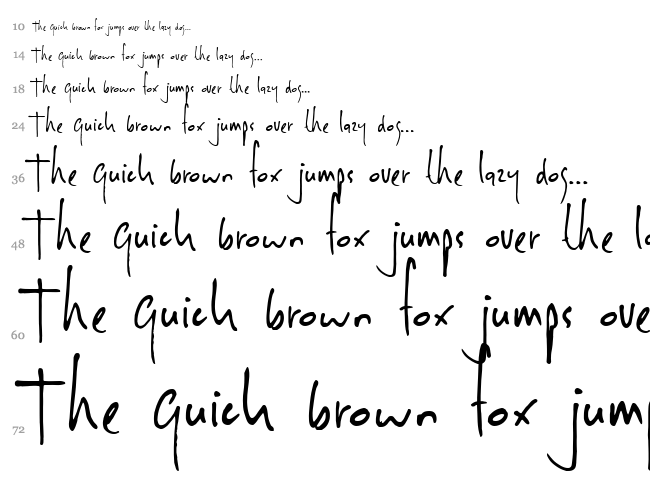 10 The quick brown fox jumps over the lazy dog...
14 The quick brown fox jumps over the lazy dog...
18 The quick brown fox jumps over the lazy dog...
24 The quick brown fox jumps over the lazy dog...
36 The quick brown fox jumps over the lazy dog...
48 The quick brown fox jumps over the la
60 The quick brown fox jumps ove
72 The quick brown fox jump